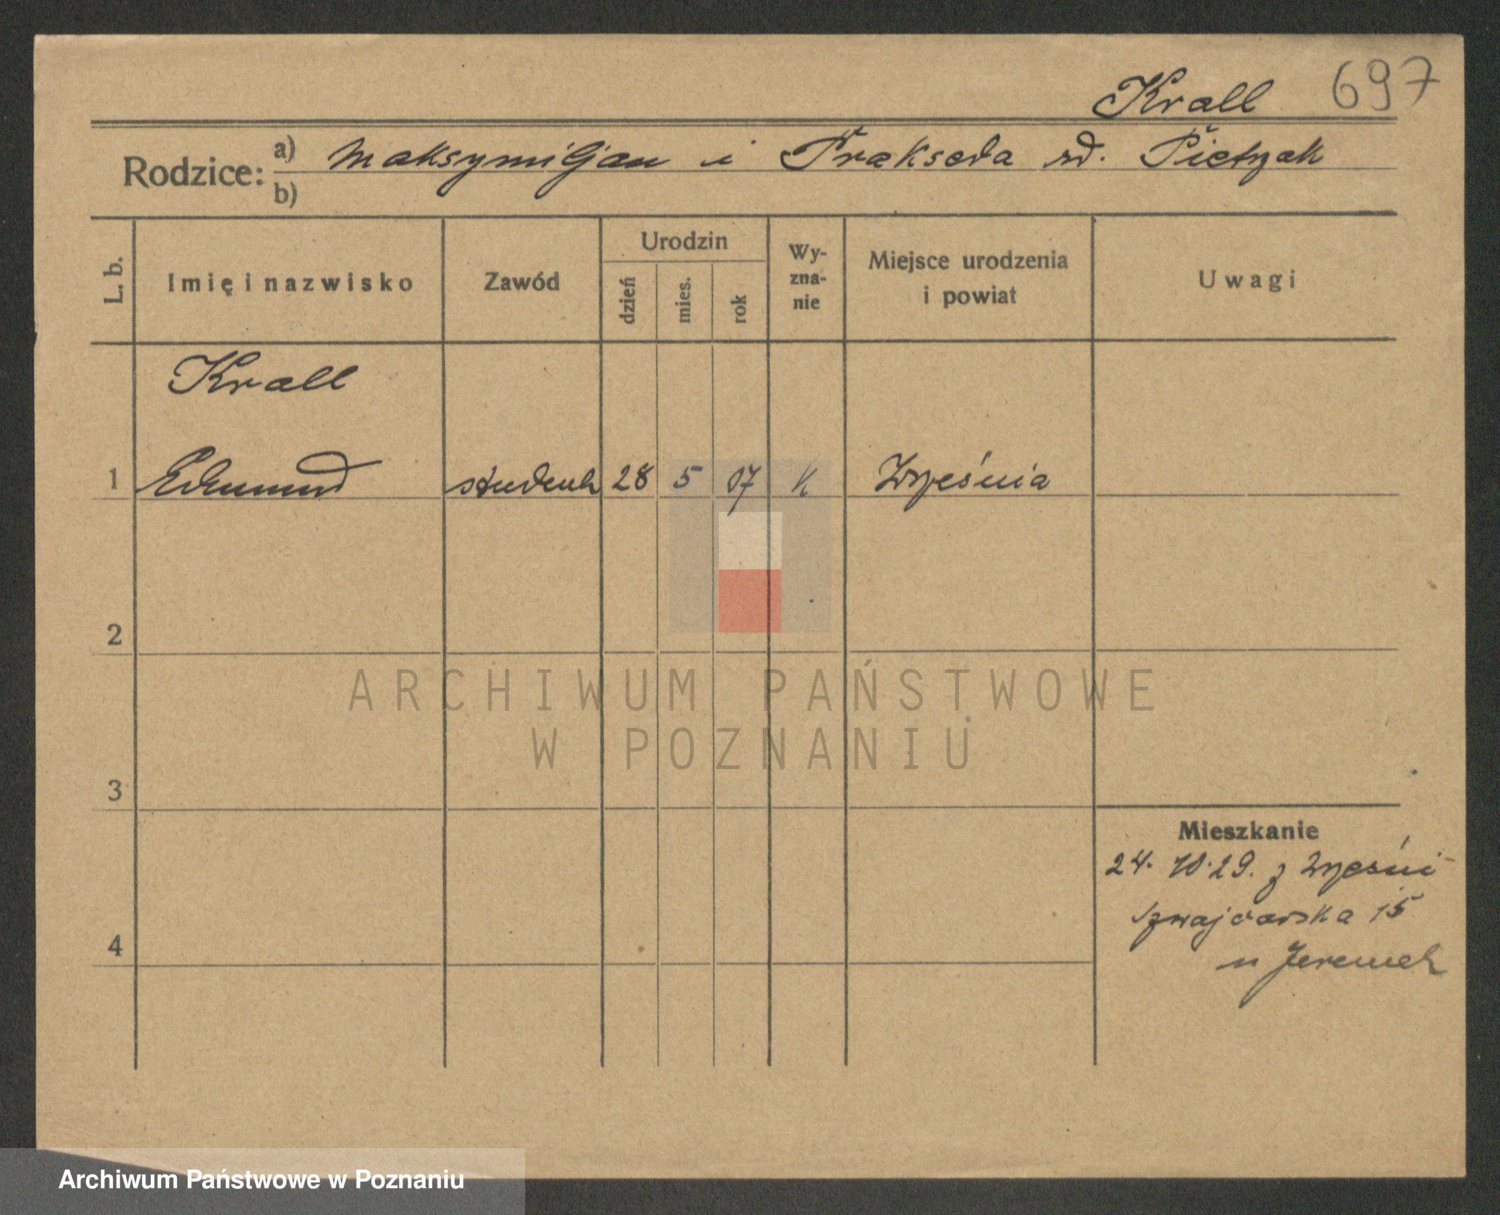 Krall 697
Rodzice: a) Maksymiljan i Prakseda rd. Pietrzak
b)
L. b.
Imię i nazwisko
Zawód
Urodzin
dzień
mies.
rok
Wy-
zna-
nie
Miejsce urodzenia
i powiat
Uwagi
Krall
1 Edmund student 28 5 07 k Września
2
ARCHIWUM PAŃSTWOWE
W POZNANIU
3
Mieszkanie
24. 10. 29. z Wrześni
Szwajcarska 15
4
u
Archiwum Państwowe w Poznaniu